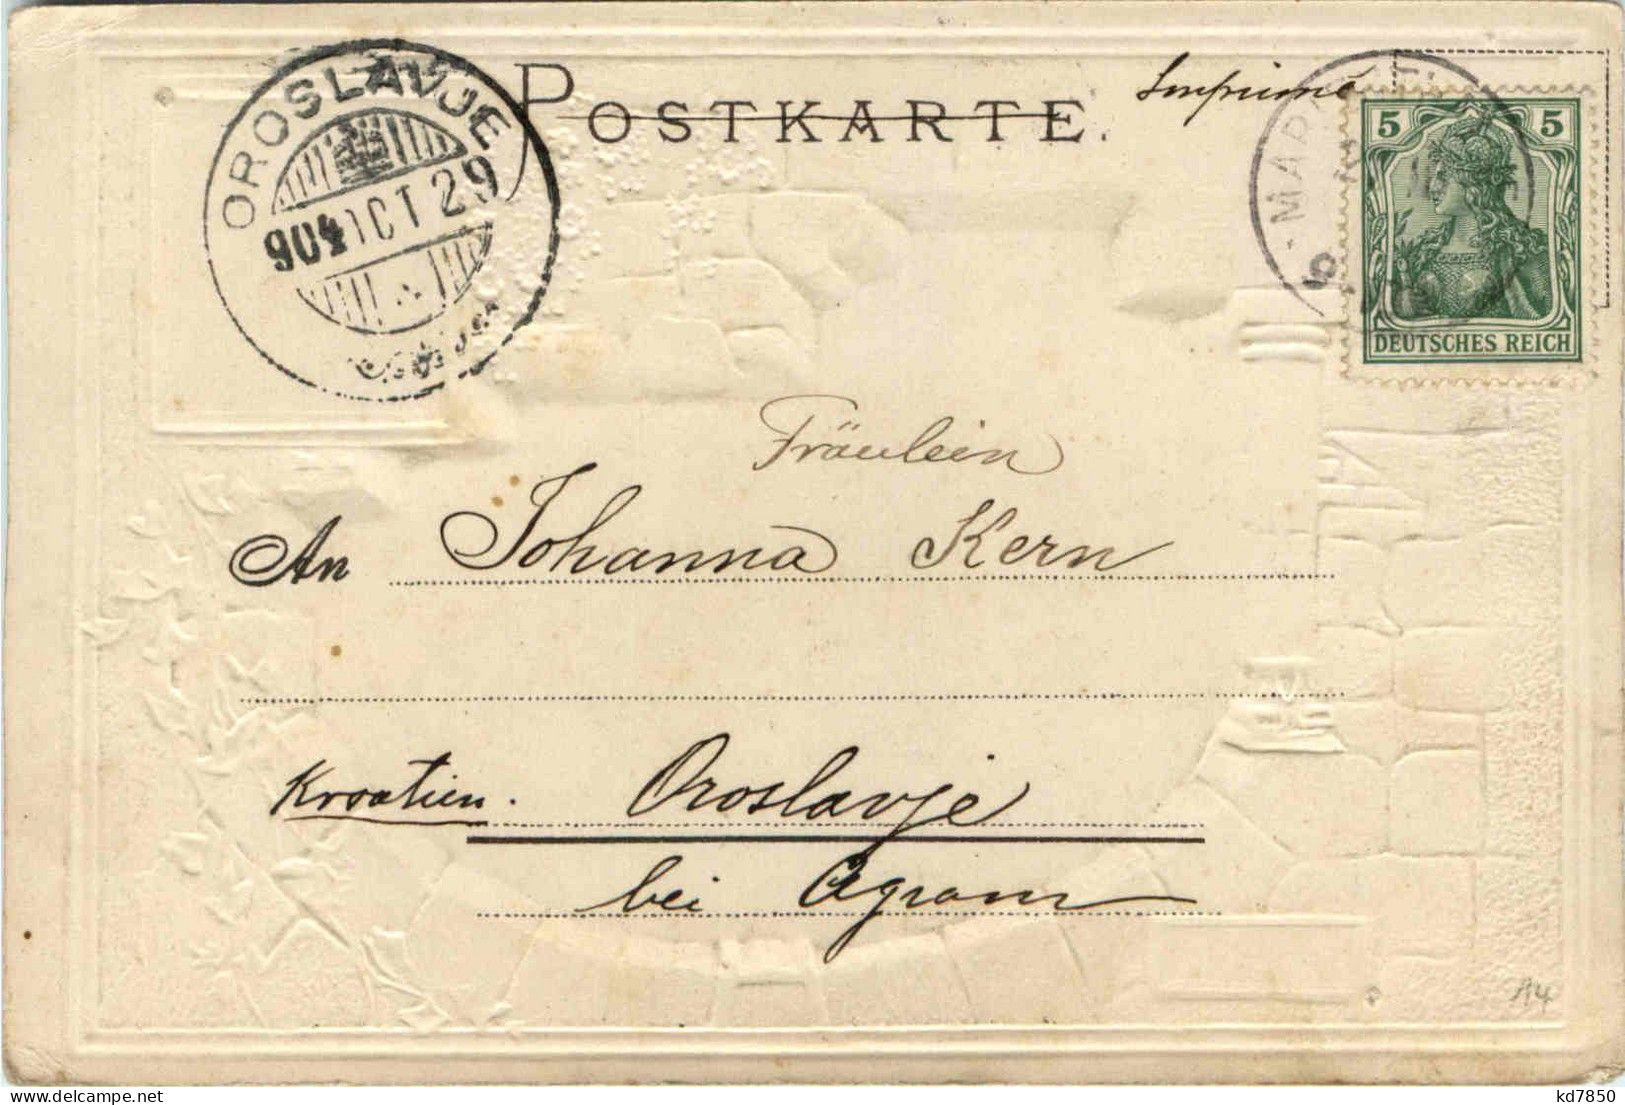 POSTKARTE.
Imprimé
OROSLAVJE
904 OCT 29
5 5
DEUTSCHES REICH
Fräulein
An Johanna Kern
Kroatien. Oroslavje
bei Agram
A4
kd7850